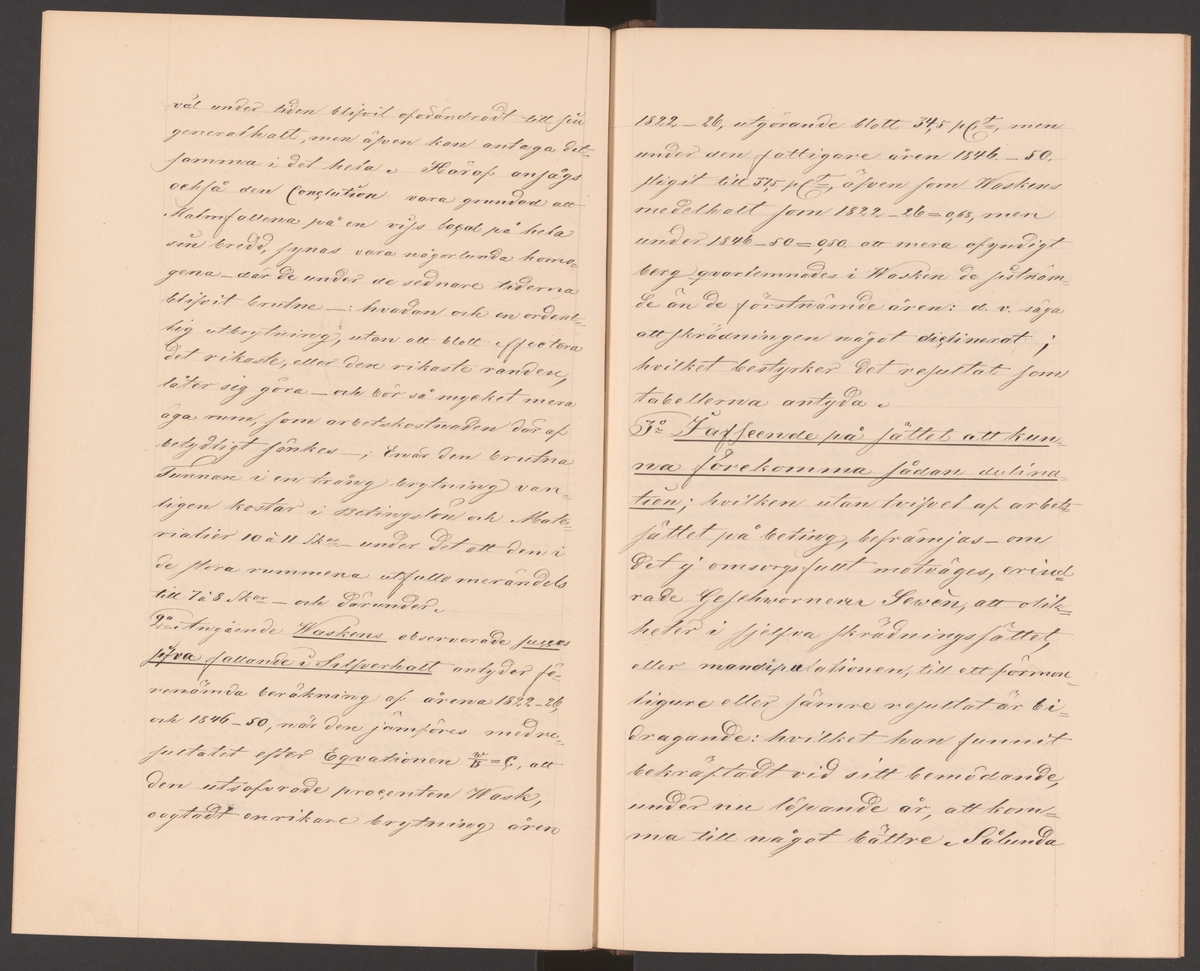 väl under tiden blifvit oförändradt till sin
generalhalt, men äfven kan antaga det-
samma i det hela. Häraf anses
också den Conclution vara grundad att
Malmfallena på en viss local på hela
sin bredd, synas vara någorlunda homo-
gena – där de under de sednare tiderna
blifvit brutne –: hvadan och en ordent-
lig utbrytning, utan att blott effectera
det rikaste, eller den rikaste randen,
låter sig göra – och bör så mycket mera
äga rum, som arbetskostnaden där af
betydligt sänkes –; Enär den brutna
Tunnan i en trång brytning van-
ligen kostar i Betingslön och Mate-
rialier 10 à 11 Skor – under det att den i
de stora rummena utfalle merändels
till 7 à 8 Skor – och därunder.
2o Angående Waskens observerade succes
sifva fallande i Silfverhalt antyder fö-
renämda beräkning af årena 1822–26,
och 1846–50, när den jämföres med re-
sultatet efter Eqvationen w/B = C, att
den utsofrade procenten Wask,
oagtadt en rikare brytning åren
1822–26, utgörande blott 34,5 pCt, men
under den fattigare åren 1846–50.
stigit till 37,5 pCt, äfven som Waskens
medelhalt som 1822–26 = 0,63, men
under 1846–50 = 0,50. att mera ofyndigt
berg qvarlemnades i Wasken de sistnäm-
de än de förstnämde åren: d. v. säga
att skrädningen något diclinerat;
hvilket bestyrker det resultat som
tabellerna antyda.
3o I afseende på sättet att kun-
na förekomma sådan dulina-
tion; hvilken utan tvifvel af arbets-
sättet på beting, befrämjas – om
det ej omsorgsfullt motväges, erind
rade Geschwornern Sewèn, att olik-
heter i sjelfva skrädningssättet,
eller mandipulationen, till ett förmon-
ligare eller sämre resultat är bi-
dragande: hvilket han funnit
bekräftadt vid sitt bemödande,
under nu löpande år, att kom-
ma till något bättre. Sålunda